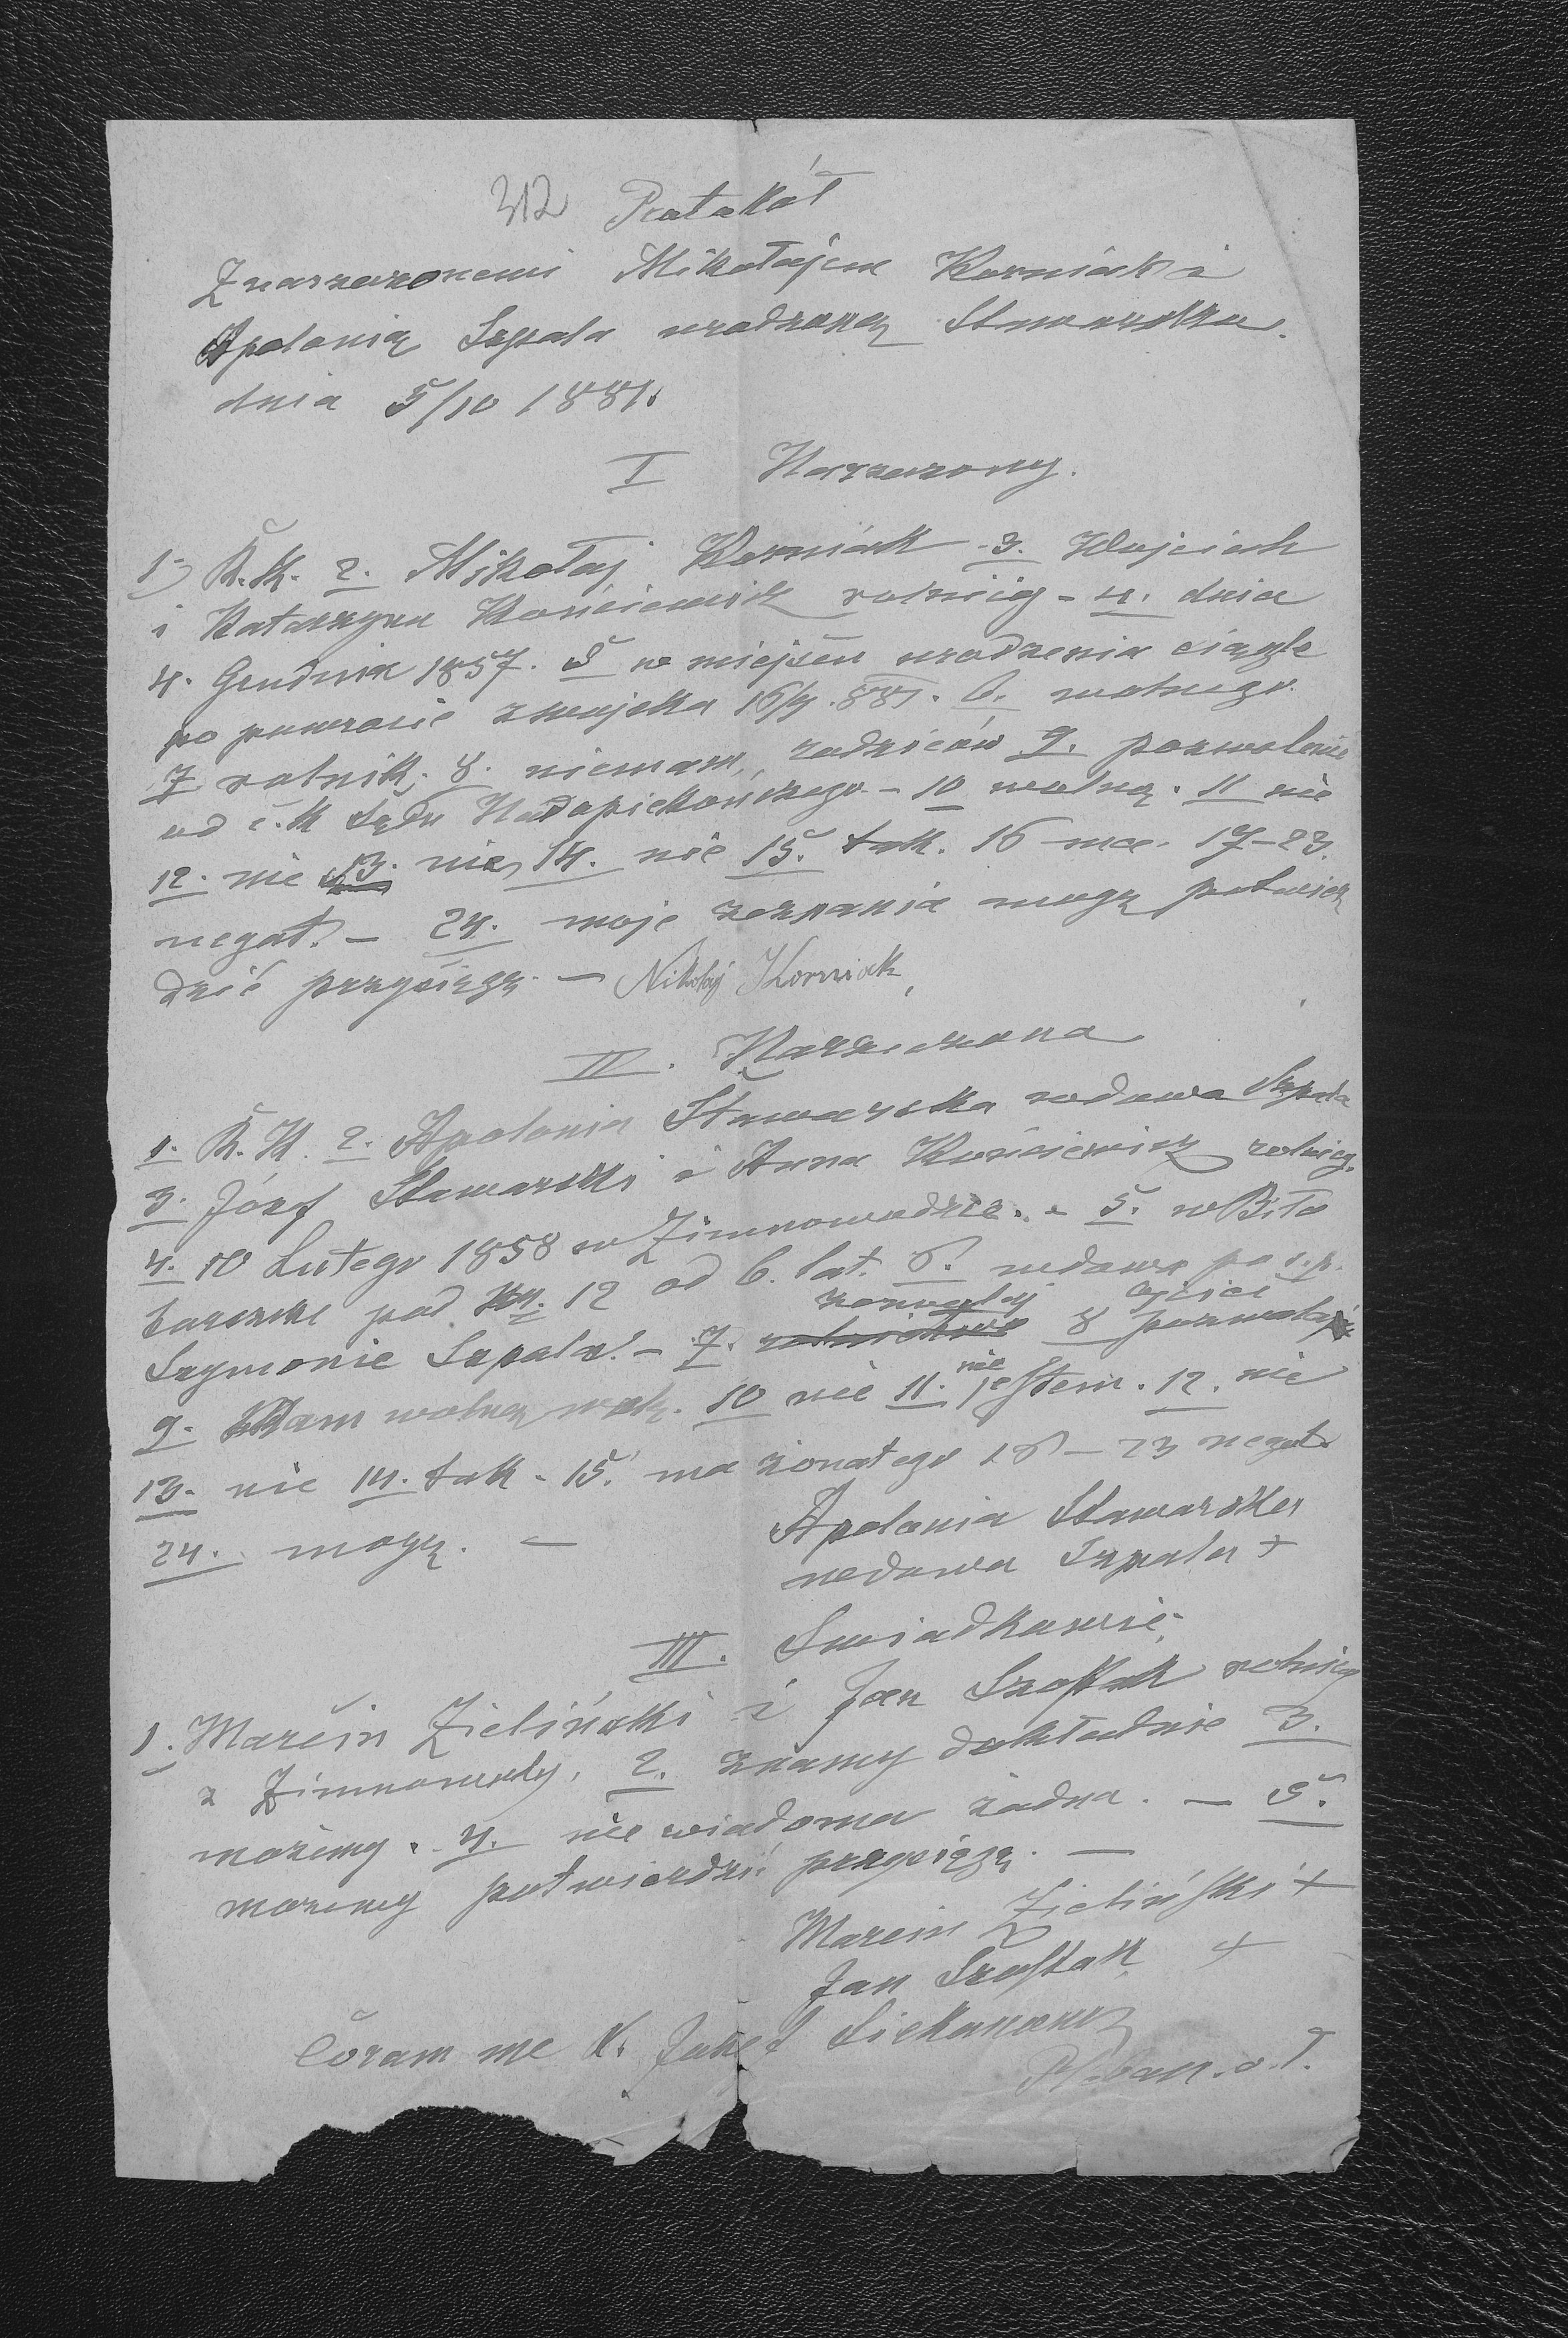 312 Protokół
Z narzeczonemi Mikołajem Korniak i
Apolonią Szpala urodzoną Stawarska
dnia 5/10 1881.
I Narzeczony.
1) R.K. 2. Mikołaj Korniak 3. Wojciech
i Katarzyna Kościewicz rolnicy - 4. dnia
4. Grudnia 1857. 5 w miejscu urodzenia ciągle
po powrocie z wojska 16/9. 881. 6. wolnego
7 rolnik. 8. niemam, rodziców 9. pozwolenie
od c.k Sądu Nadopiekończego - 10 wolną. 11 nie
12. nie 13. nie, 14. nie 15. tak. 16 ma. 17-23.
negat. - 24. moje zeznania mogę potwier
dzić przysięgą. - Nikołaj Korniak,
II. Narzeczona
1. R.K. 2. Apolonia Stawarska wdowa Szpala
3. Józef Stawarski i Anna Kościewicz rolnicy.
4. 10 Lutego 1858 w Zimnowodzie. - 5. w Biło
barszcze pod 12 od 6. lat. 6. wdowa po ś.p.
Szymonie Szpala. - 7. rolnictwo 8 ojciec pozwala
9. Mam wolną wolę. 10 nie 11. nie jestem. 12. nie
13. nie 14. tak - 15. ma żonatego 16 - 23 negat.
24. mogę. -
Apolonia Stawarska
wdowa Szpala +
III. Swiadkowie.
1. Marcin Zieliński i Jan Szostak rolnicy
z Zimnowody, 2. znamy dokładnie 3.
możemy. 4. nie wiadoma żadna. - 5.
możemy potwierdzić przysięgą. -
Marcin Zieliński +
Jan Szostak +
Coram me X. Józef
Pleban. o. ł.